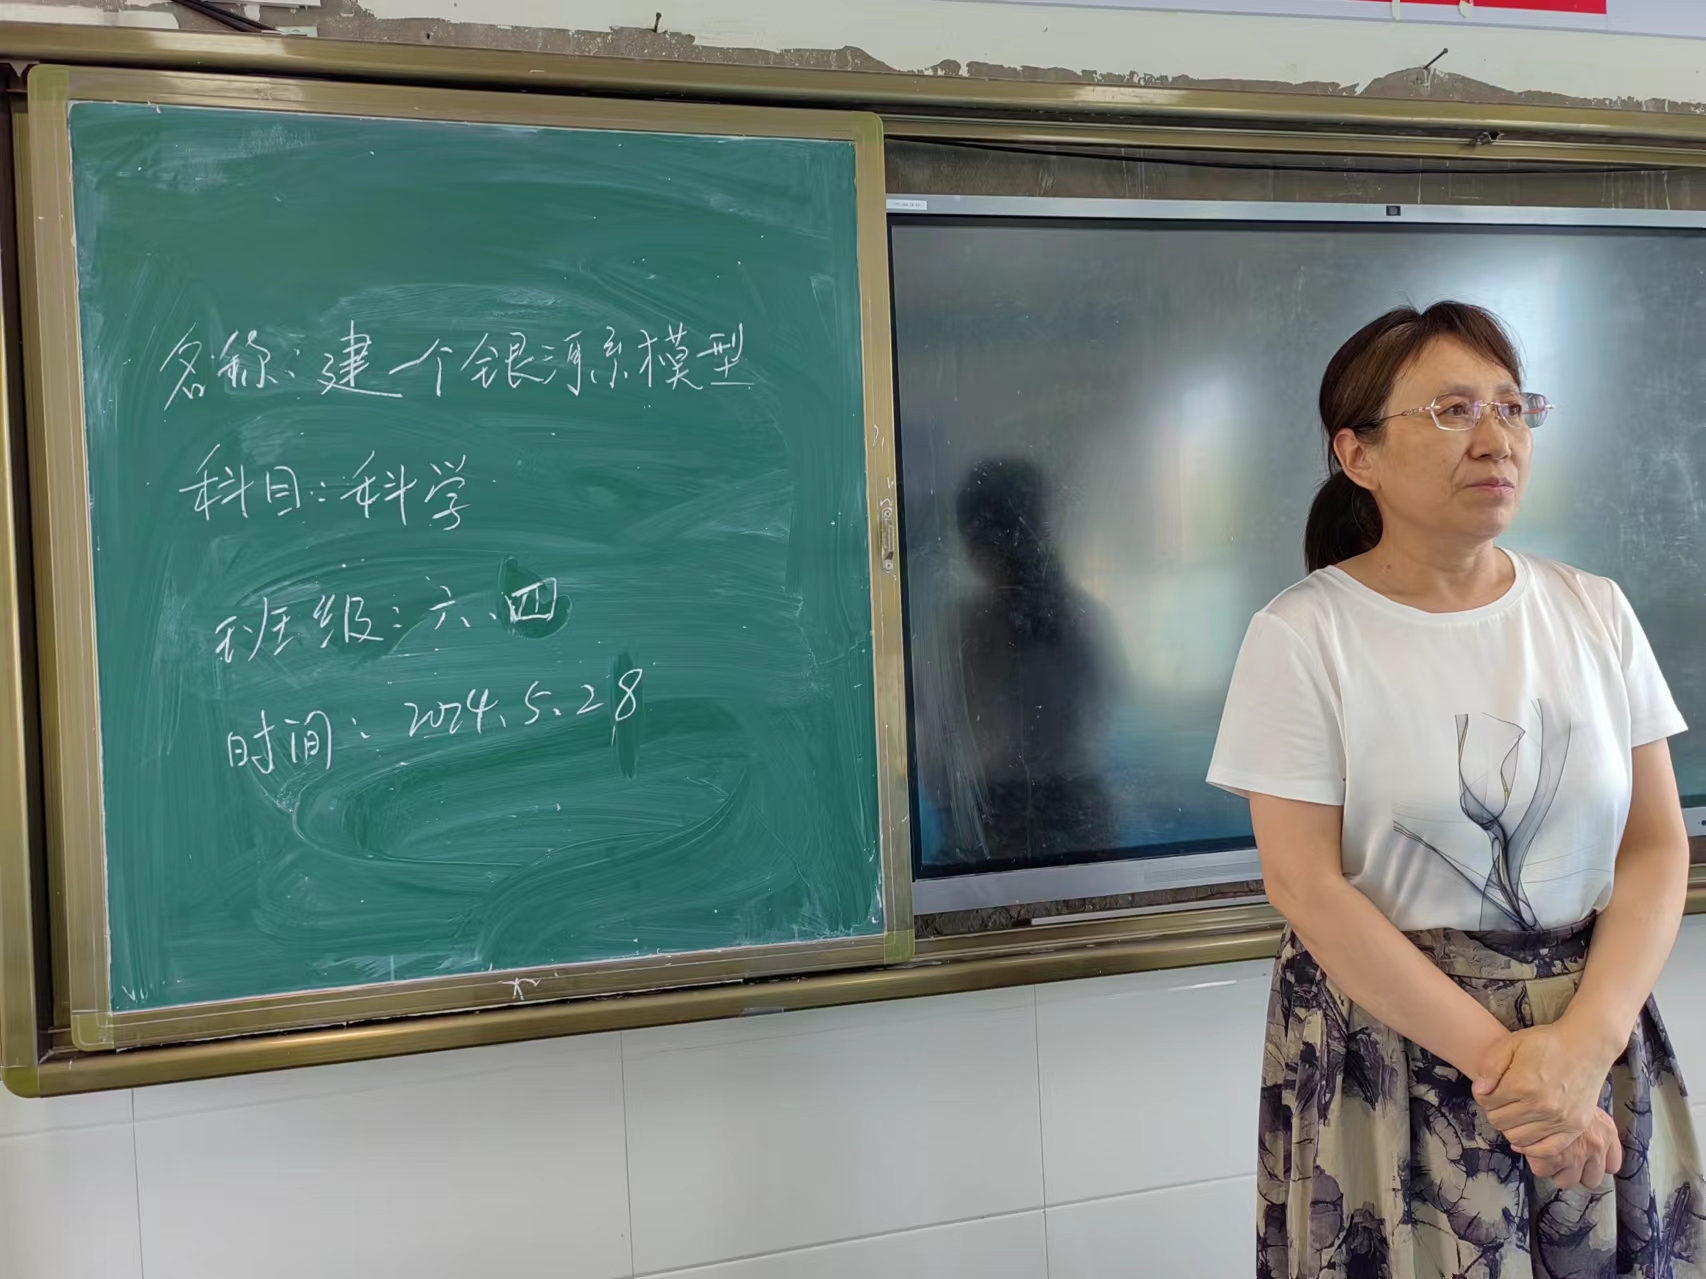 名称：建一个银河系模型
科目：科学
班级：六、四
时间：2024.5.28